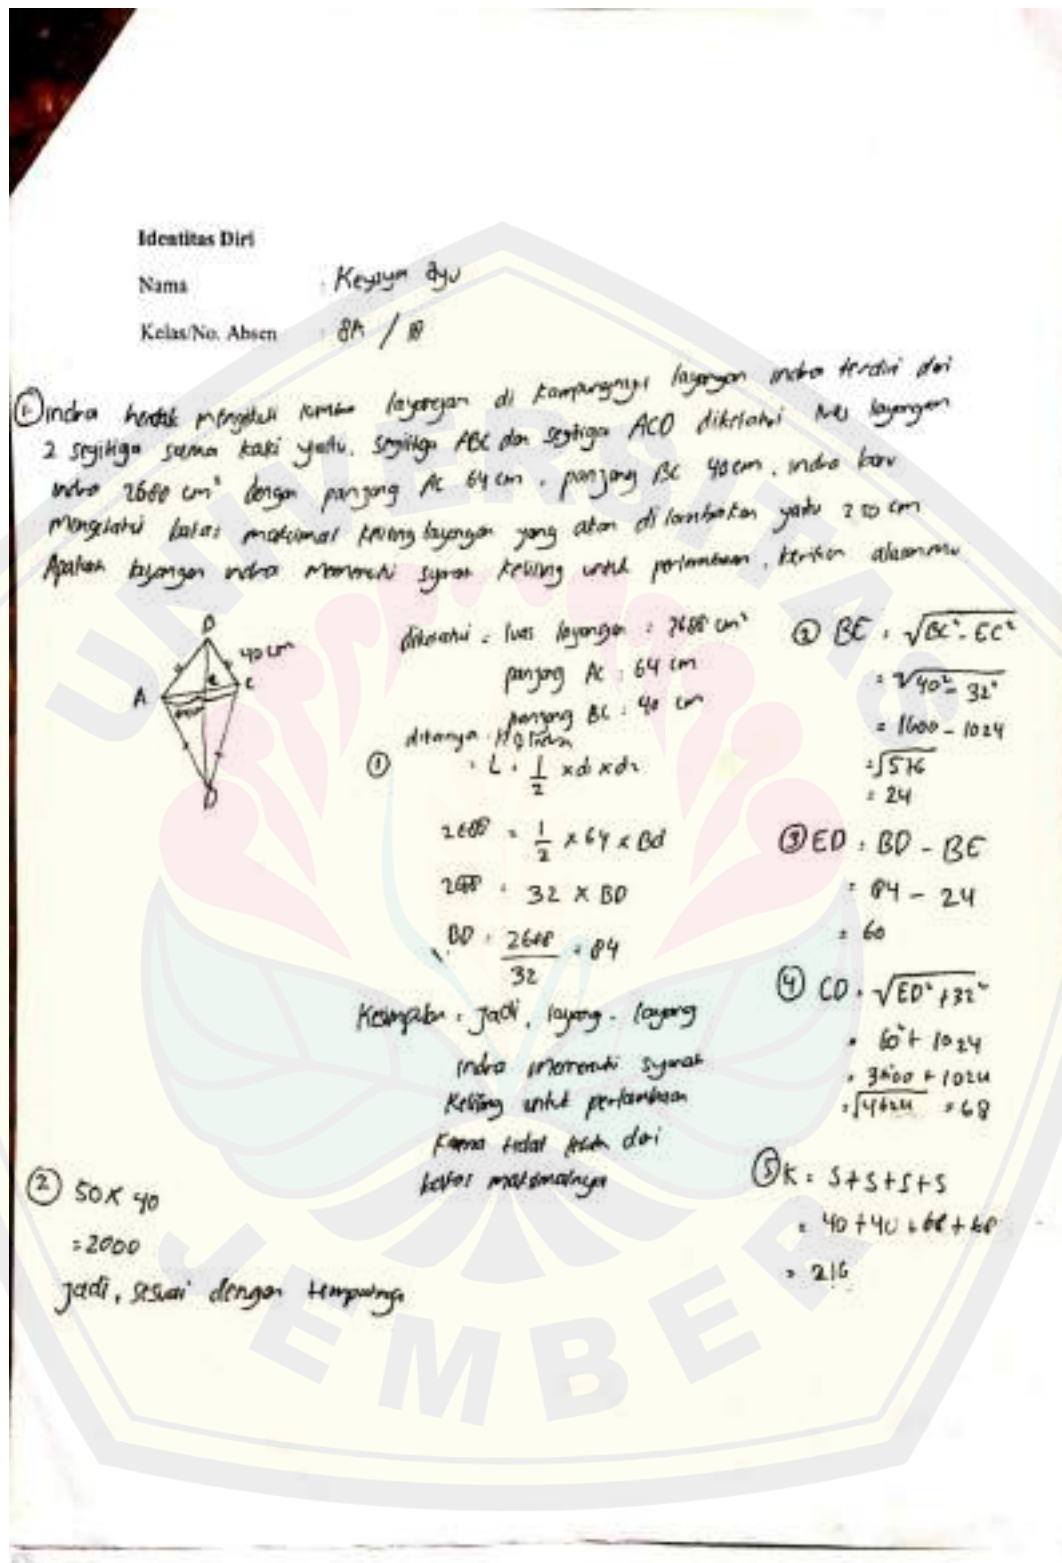 Identitas Diri
Nama : Keysya Ayu
Kelas/No. Absen : 8A / 18
① indra hendak mengikuti lomba layangan di kampungnya layangan indra terdiri dari
2 segitiga sama kaki yaitu, segitiga ABC dan segitiga ACD diketahui luas layangan
indra 2688 cm² dengan panjang AC 64 cm, panjang BC 40 cm, indra baru
mengetahui batas maksimal keliling layangan yang akan di lombakan yaitu 220 cm
Apakah layangan indra memenuhi syarat keliling untuk perlombaan, berikan alasanmu
B
40 cm
A
E
C
D
diketahui = luas layangan : 2688 cm²
panjang AC : 64 cm
panjang BC : 40 cm
ditanya :
① = L = 1/2 x d1 x d2
2688 = 1/2 x 64 x Bd
2688 = 32 x BD
BD = 2688/32 = 84
Kesimpulan = jadi, layang-layang
indra memenuhi syarat
keliling untuk perlombaan
karna tidak lebih dari
batas maksimalnya
② BE = √BC² - EC²
= √40² - 32²
= 1600 - 1024
= √576
= 24
③ ED = BD - BE
= 84 - 24
= 60
④ CD = √ED² + 32²
= 60² + 1024
= 3600 + 1024
= √4624 = 68
⑤ K = S+S+S+S
= 40 + 40 + 68 + 68
= 216
② 50 x 40
= 2000
jadi, sesuai dengan tempatnya
UNIVERSITAS
JEMBER